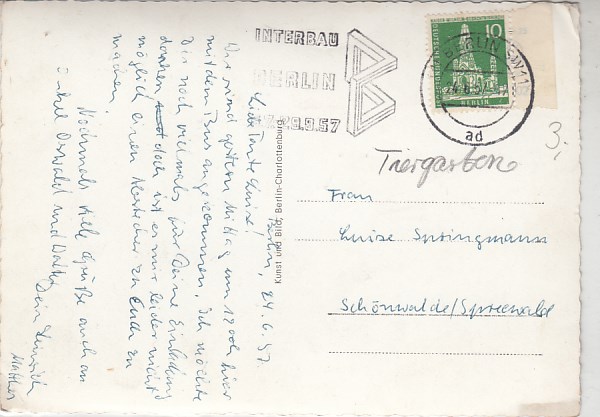 INTERBAU
BERLIN
29.9.57
10
BERLIN
BERLIN SW11
ad
3,-
Tiergarten
Frau
Luise Springmann
Schönwalde/Spreewald
Kunst und Bild, Berlin-Charlottenburg
Berlin, 24.6.57
Liebe Tante Luise!
Wir sind gestern Mittag um 12 Uhr hier
mit dem Bus angekommen. Ich möchte
Dir noch vielmals für Deine Einladung
danken doch ist es mir leider nicht
möglich einen Abstecher zu Euch zu
machen.
Nochmals viele Grüße auch an
Onkel Oswald und
Dein Heinrich